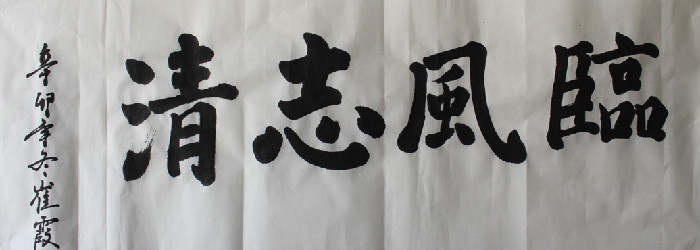 臨風志清
辛卯年冬崔霞